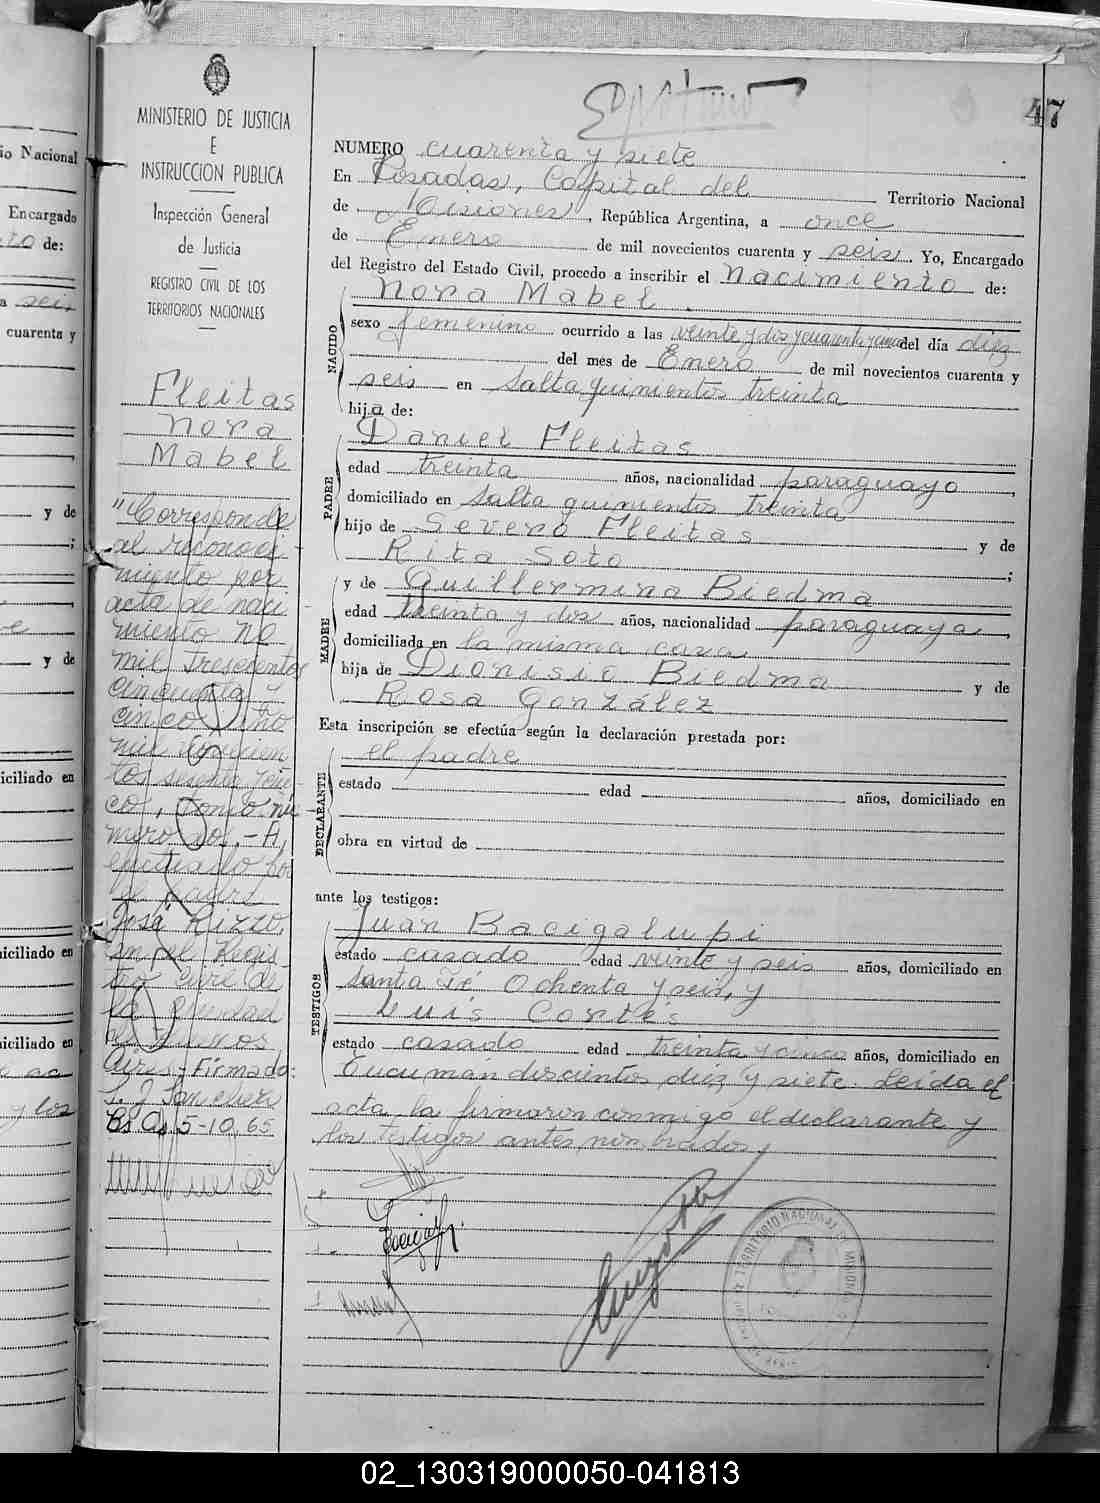 47
MINISTERIO DE JUSTICIA
E
INSTRUCCION PUBLICA
Inspección General
de Justicia
REGISTRO CIVIL DE LOS
TERRITORIOS NACIONALES
Fleitas
Nora
Mabel
"Corresponde
al reconoci-
miento por
acta de naci-
miento No
mil trescientos
cincuenta y
cinco, año
mil novecien
tos sesenta y cin
co, tomo nú
mero
efectuado por
el padre
José Rizzo,
en el Regis-
tro Civil de
la ciudad
de Buenos
Aires - Firmado:
Bs As 5-10-65
NUMERO cuarenta y siete
En Posadas, Capital del Territorio Nacional
de Misiones, República Argentina, a once
de Enero de mil novecientos cuarenta y seis. Yo, Encargado
del Registro del Estado Civil, procedo a inscribir el nacimiento de:
NACIDO
Nora Mabel
sexo femenino ocurrido a las veinte y dos y cuarenta y cinco del día diez
del mes de Enero de mil novecientos cuarenta y
seis en Salta quinientos treinta
hija de:
PADRE
Daniel Fleitas
edad treinta años, nacionalidad paraguayo,
domiciliado en Salta quinientos treinta
hijo de Severo Fleitas y de
Rita Soto;
MADRE
y de Guillermina Biedma
edad treinta y dos años, nacionalidad paraguaya,
domiciliada en la misma casa
hija de Dionisio Biedma y de
Rosa González
Esta inscripción se efectúa según la declaración prestada por:
DECLARANTE
el padre
estado edad años, domiciliado en
obra en virtud de
ante los testigos:
TESTIGOS
Juan Bacigalupi
estado casado edad veinte y seis años, domiciliado en
Santa Fé Ochenta y seis, y
Luis Cortés
estado casado edad treinta y cinco años, domiciliado en
Tucumán doscientos diez y siete. Leída el
acta la firmaron conmigo el declarante y
los testigos antes nombrados
io Nacional
Encargado
de:
a seis
cuarenta y
y de
;
y de
iciliado en
iciliado en
iciliado en
y los
02_130319000050-041813